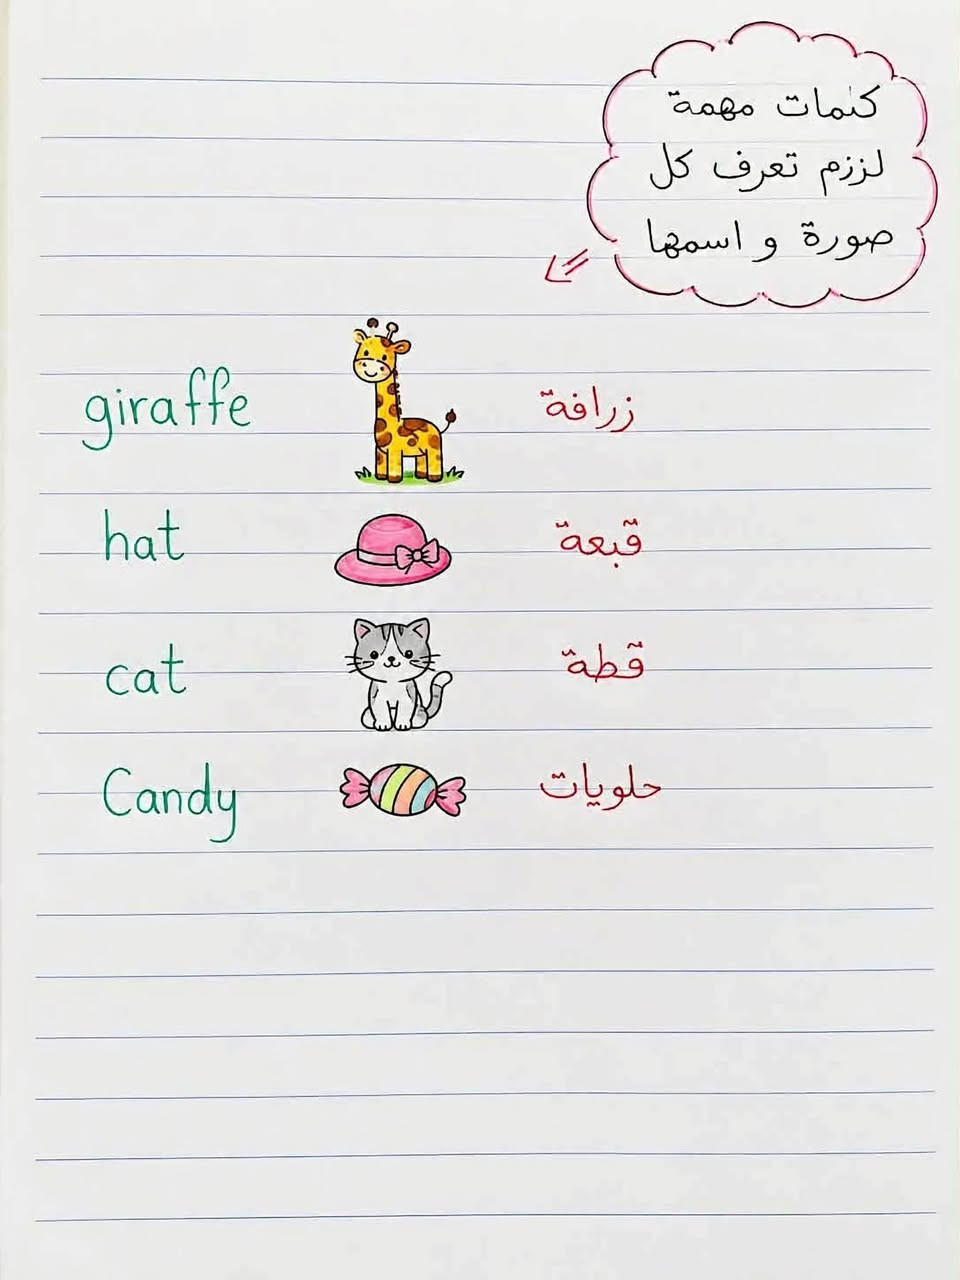 كنمات مهمة
لززم تعرف كل
صورة و اسمها
giraffe زرافة
hat قبعة
cat قطة
Candy حلويات